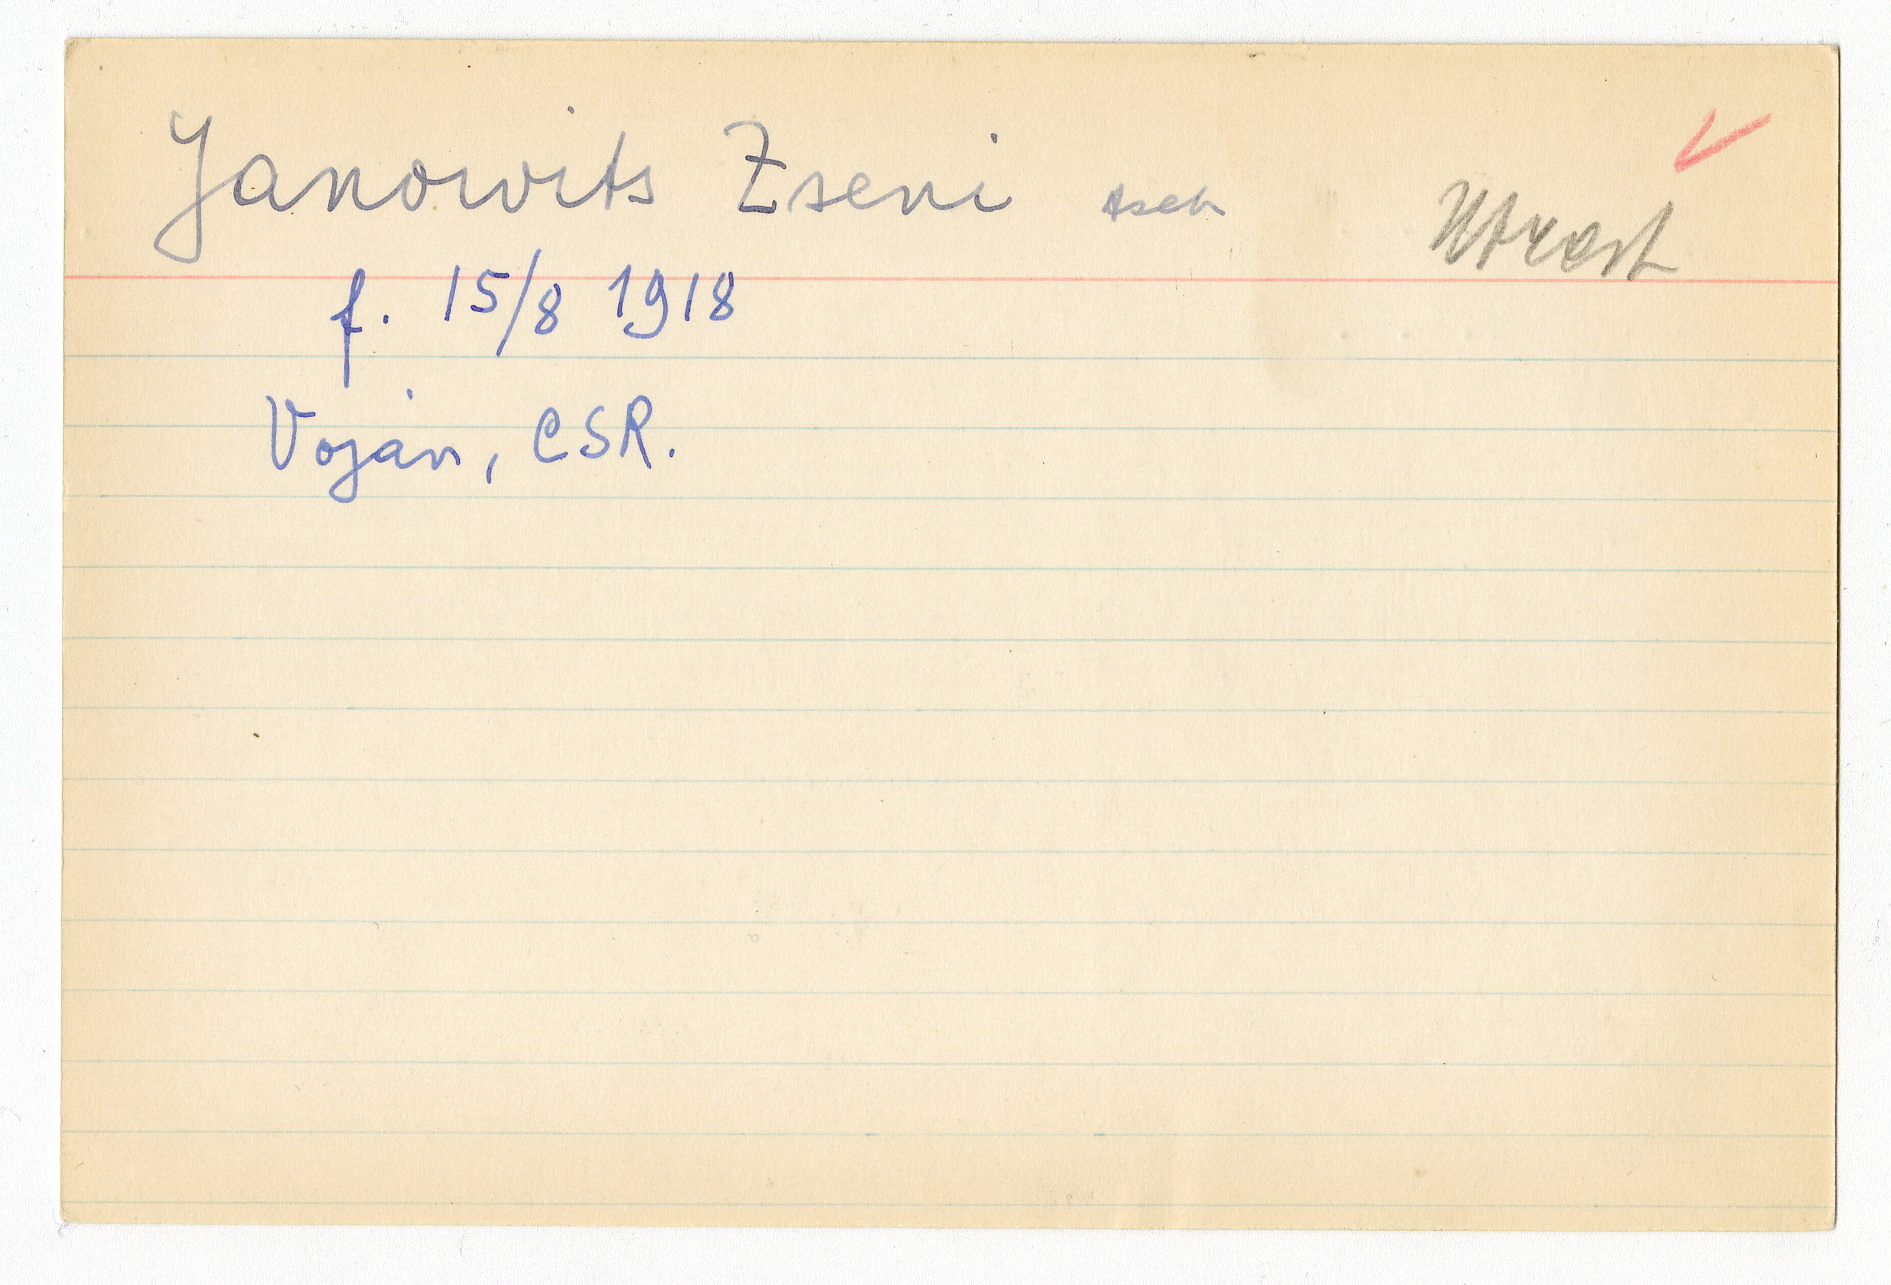 Janowits Zseni tsch Utrest
f. 15/8 1918
Vojàn, CSR.